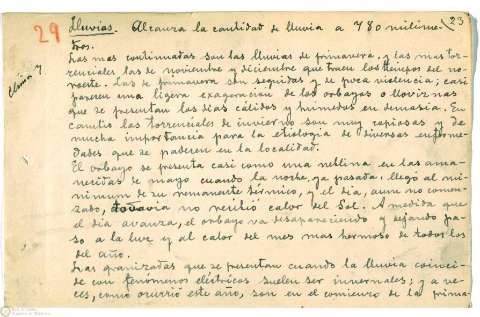 29
23
Clima 7
Lluvias. Alcanza la cantidad de lluvia a 780 milime-
tros.
Las mas continuadas son las lluvias de primavera, y las mas tor-
renciales las de noviembre y diciembre que traen los tiempos del no-
roeste. Las de primavera son seguidas y de poca violencia; casi
parecen una ligera exageracion de los orbayos o lloviznas
que se presentan los dias cálidos y húmedos en demasia. En
cambio las torrenciales de invierno son muy copiosas y de
mucha importancia para la etiologia de diversas enferme-
dades que se padecen en la localidad.
El orbayo se presenta casi como una neblina en las ama-
necidas de mayo cuando la noche, ya pasada, llegó al mi-
nimum de su remanente térmico, y el dia, aun no comen-
zado, todavia no recibió calor del Sol. A medida que
el dia avanza, el orbayo va desapareciendo y dejando pa-
so a la luz y al calor del mes mas hermoso de todos los
del año.
Las granizadas que se presentan cuando la lluvia coinci-
de con fenómenos eléctricos suelen ser invernales; y a ve-
ces, como ocurrió este año, son en el comienzo de la prima-